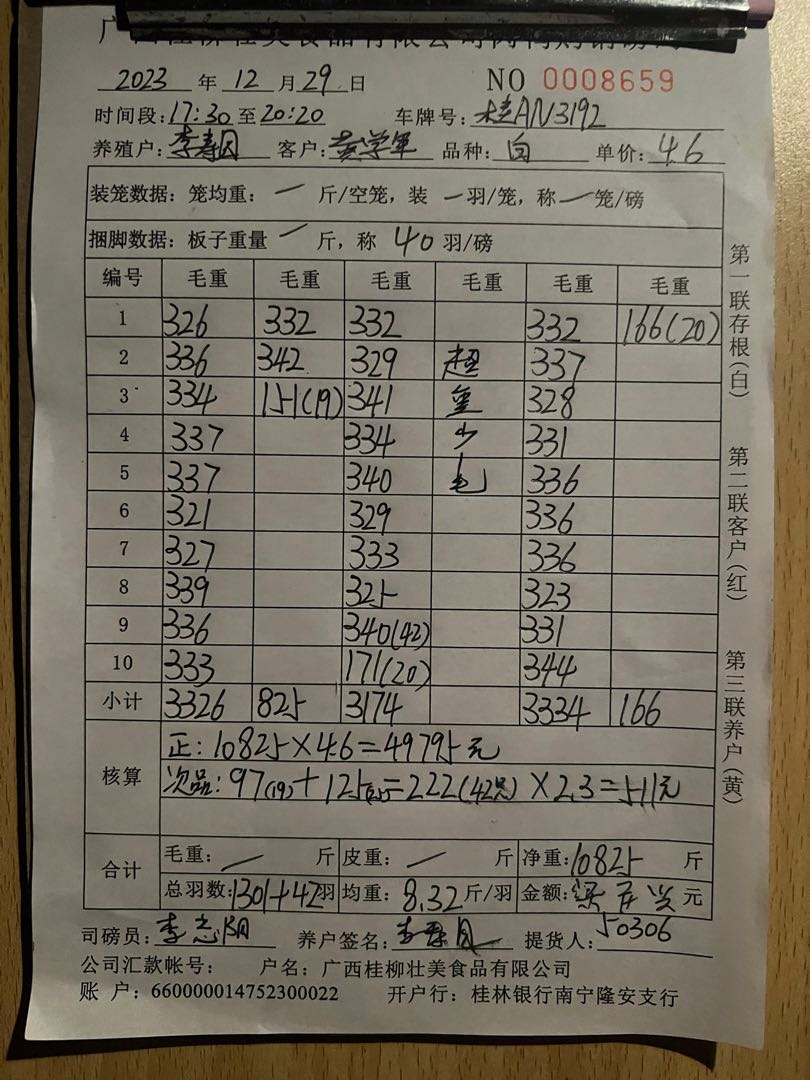 2023 年 12 月 29 日 NO 0008659
时间段: 17:30 至 20:20 车牌号: 桂AN3192
养殖户: 李寿月 客户: 黄学军 品种: 白 单价: 4.6
装笼数据: 笼均重: 一 斤/空笼, 装 一 羽/笼, 称 一 笼/磅
捆脚数据: 板子重量 一 斤, 称 40 羽/磅
编号 毛重 毛重 毛重 毛重 毛重 毛重
1 326 332 332 332 166(20)
2 336 342 329 超 337
3 334 151(19) 341 重 328
4 337 334 少 331
5 337 340 毛 336
6 321 329 336
7 327 333 336
8 339 325 323
9 336 340(42) 331
10 333 171(20) 344
小计 3326 825 3174 3334 166
核算 正: 10825×4.6=49795元
次品: 97(19)+125=222(42只)×2.3=511元
合计 毛重: 一 斤 皮重: 一 斤 净重: 10825 斤
总羽数: 1301+42羽 均重: 8.32 斤/羽 金额: 元
司磅员: 李志阳 养户签名: 李寿月 提货人: 50306
公司汇款帐号: 户名: 广西桂柳壮美食品有限公司
账 户: 660000014752300022 开户行: 桂林银行南宁隆安支行
第一联存根(白) 第二联客户(红) 第三联养户(黄)